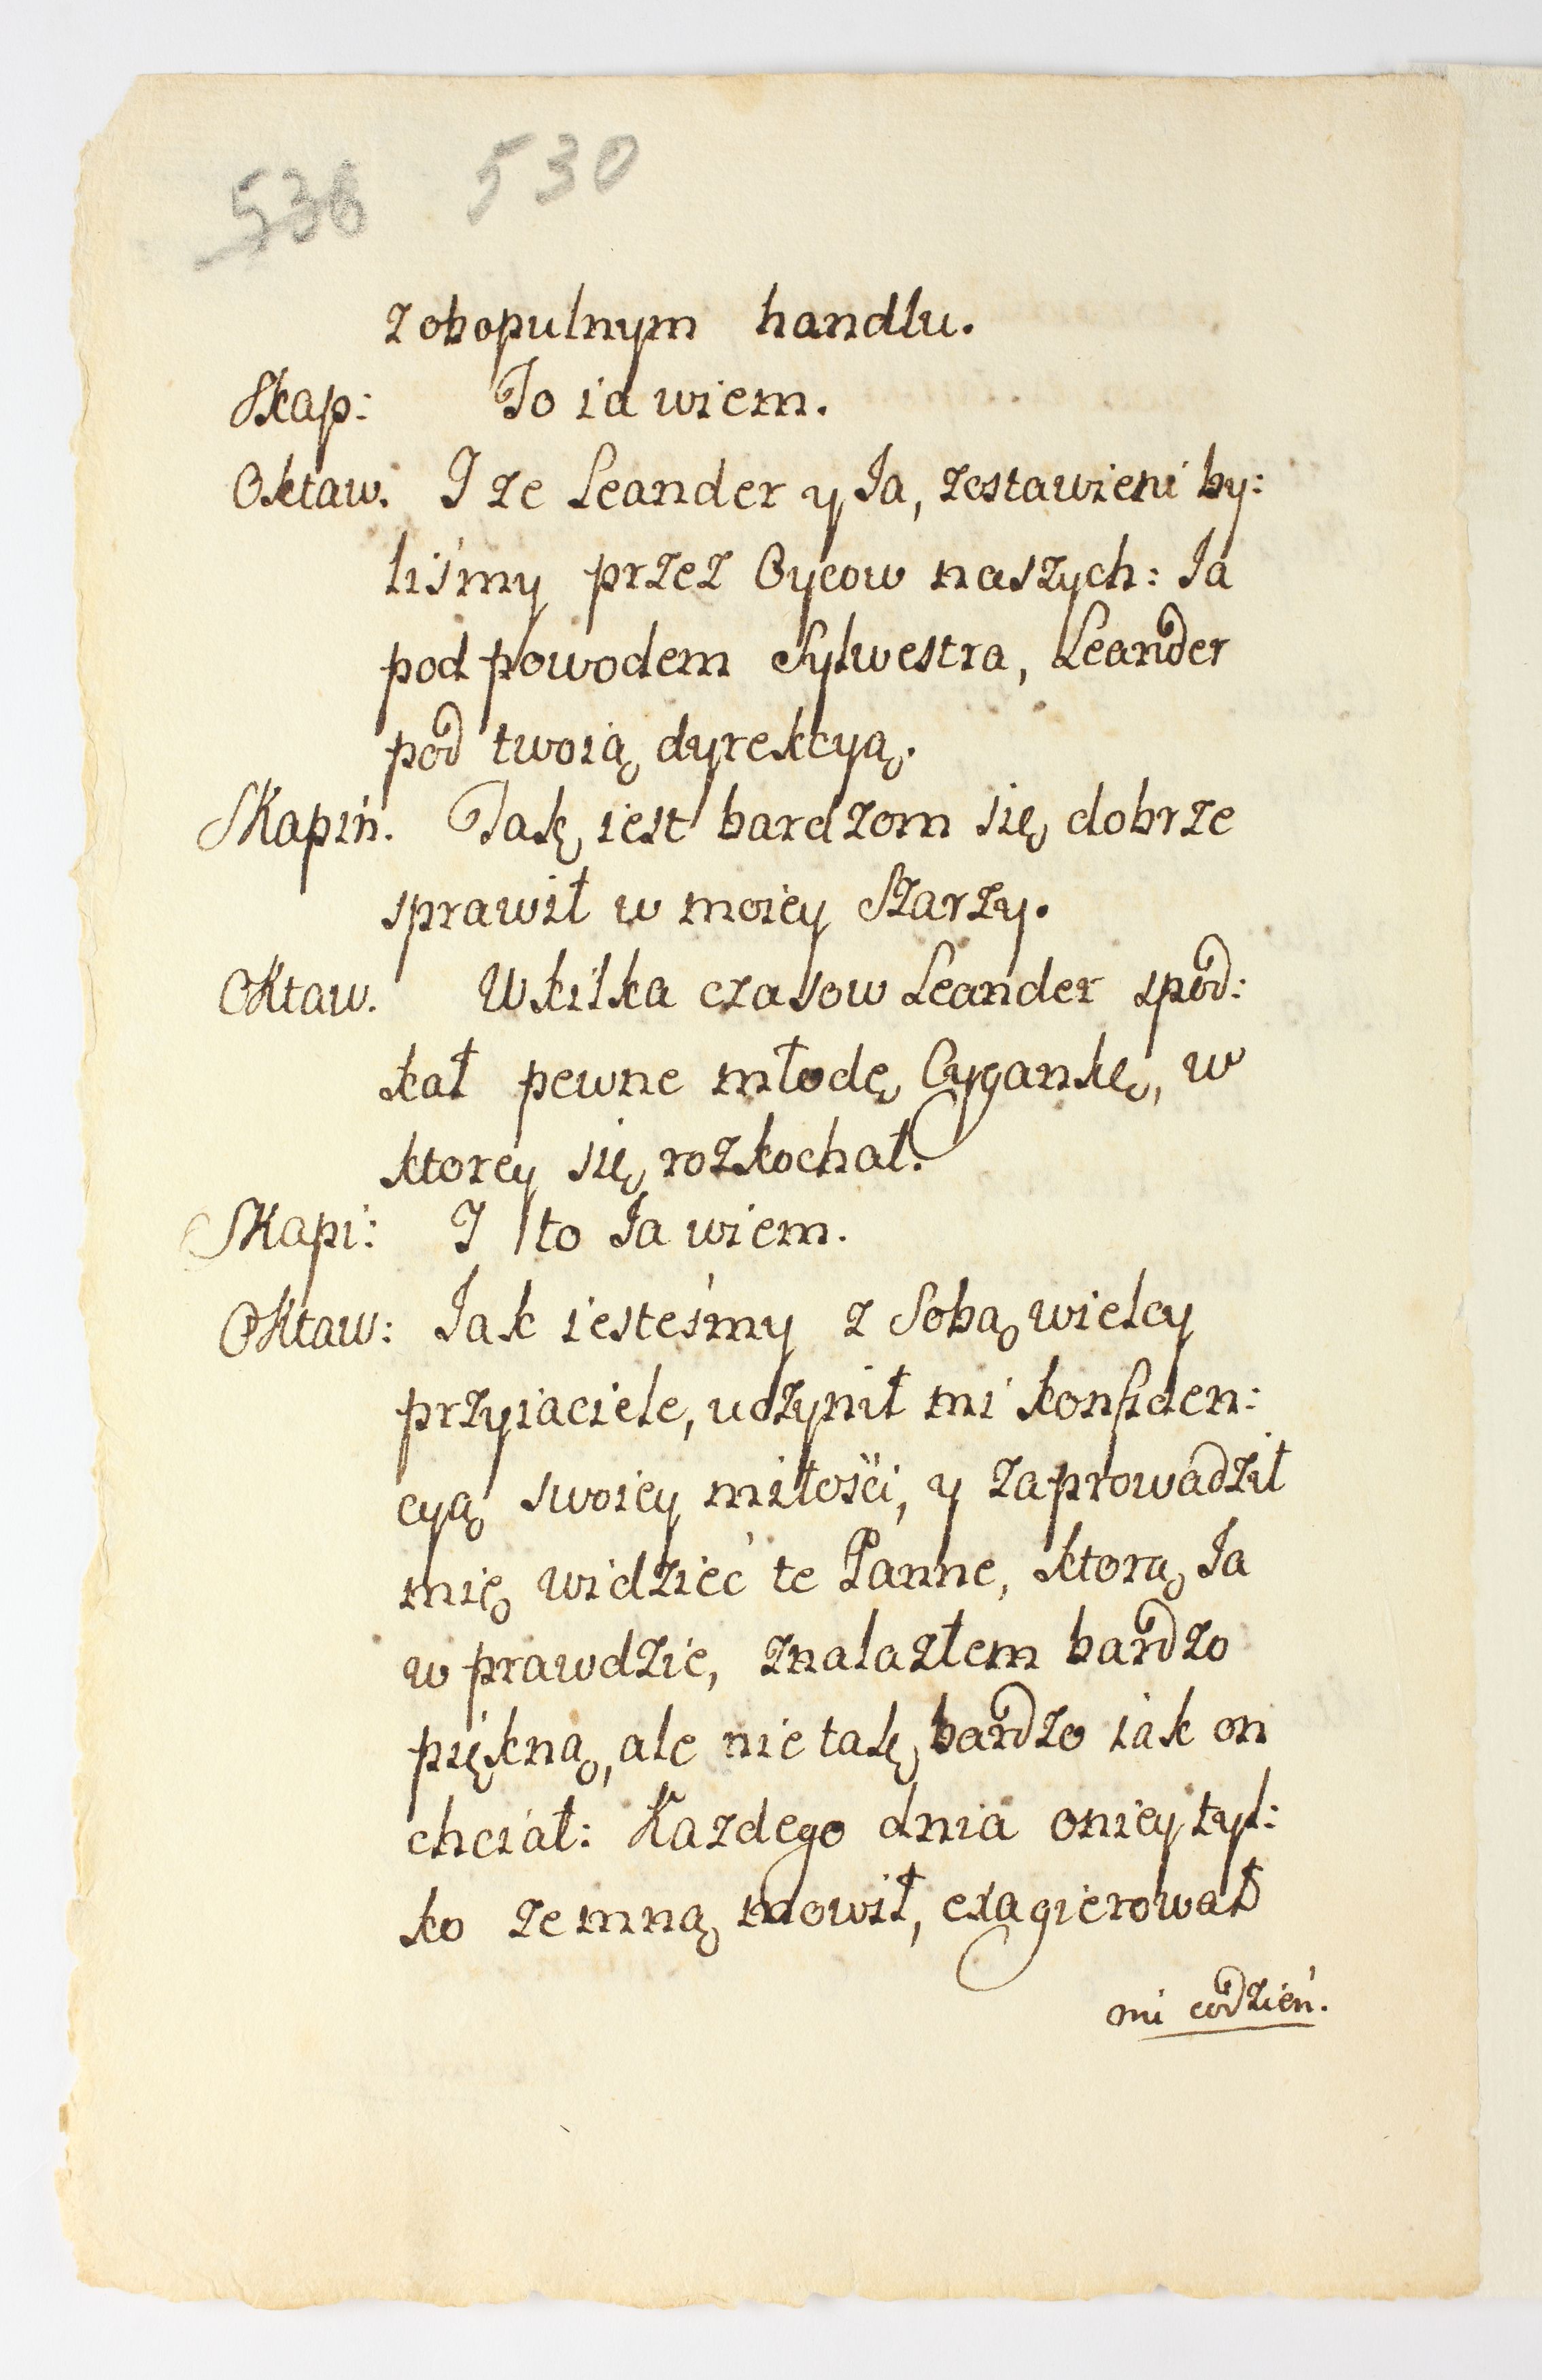 536 530
z obopulnym handlu.
Skap: To ia wiem.
Oktaw. I ze Leander y Ia, zostawieni by:
liśmy przez Oycow naszych: Ia
pod powodem Sylwestra, Leander
pod twoią dyrekcyą.
Skapiń. Takę iest bardzom się dobrze
sprawił w moiey Szarzy.
Oktaw. W kilka czasow Leander spod:
kał pewne młodę Cygankę, w
ktorey się rozkochał.
Skapi: I to Ia wiem.
Oktaw: Iak iesteśmy z Sobą wielcy
przyiaciele, uczynił mi konfiden:
cyą swoiey miłości, y zaprowadził
mię widzieć te Panne, ktorą Ia
w prawdzie, znalazłem bardzo
piękną, ale nie takę bardzo iak on
chciał: Kazdego dnia oniey tyl:
ko ze mną mowił, exagierował
mi codzień.